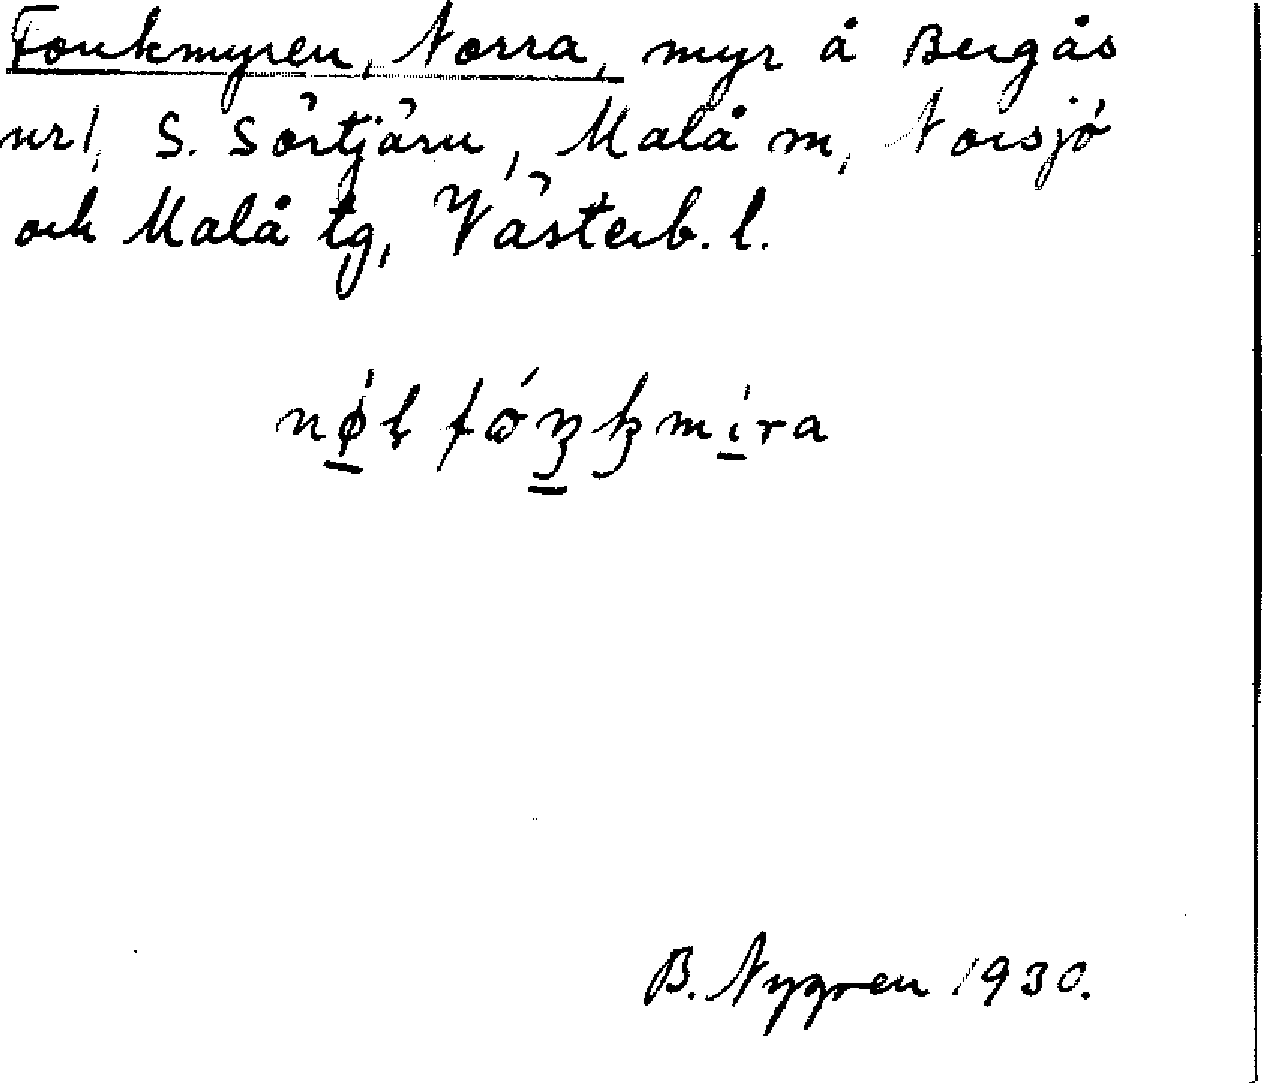 Fonkmyren, Norra, myr å Bergås
nr 1, S. Sörtjärn, Malå m, Norsjö
och Malå tg, Västerb. l.
B. Nygren 1930.